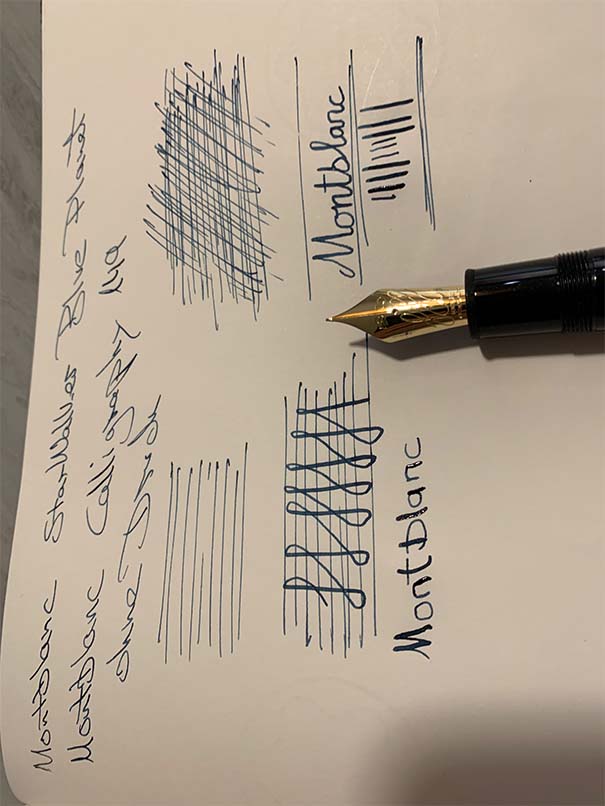 Montblanc StarWalker Blue Planet
Montblanc Calligraphy 149
ohne Druck
Montblanc
Montblanc